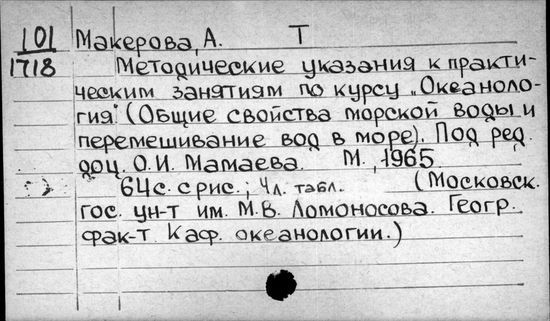 101 Макерова, А. Т
1718 Методические указания к практи-
ческим занятиям по курсу „Океаноло-
гия" (Общие свойства морской воды и
перемешивание вод в море). Под ред.
доц. О.И. Мамаева. М., 1965
64с. с рис.; 4л. табл. (Московск.
гос. ун-т им. М.В. Ломоносова. Геогр.
фак-т. Каф. океанологии.)